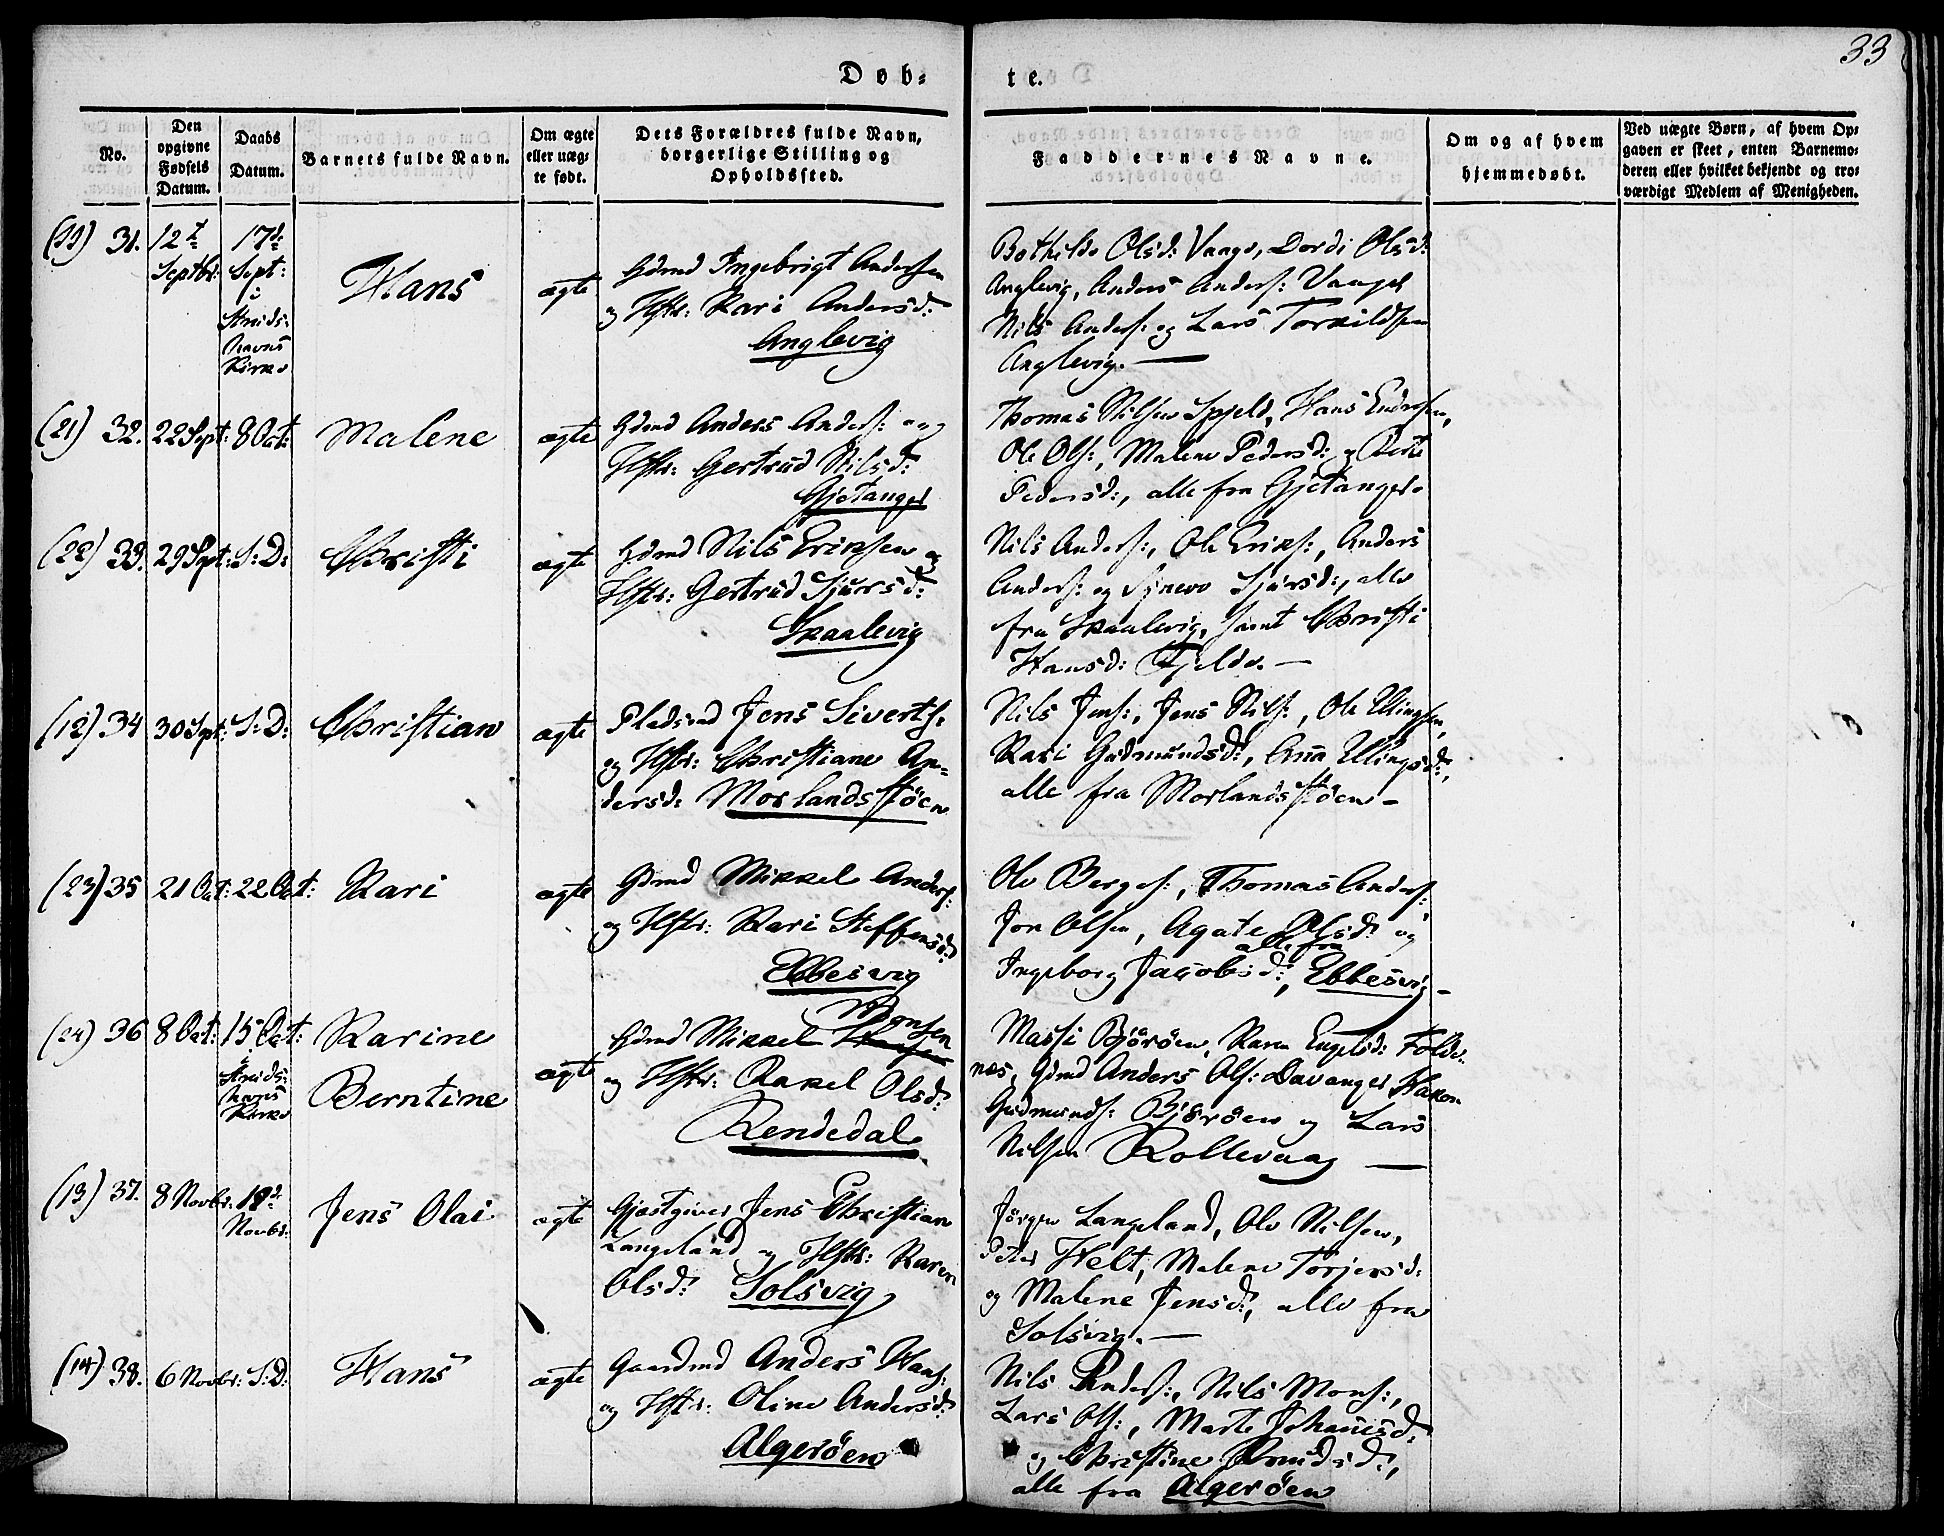 33
Døb-
te.
No.
Den
opgivne
Fødsels
Datum.
Daabs
Datum.
Barnets fulde Navn.
Om ægte
eller uæg-
te født.
Dets Forældres fulde Navn,
borgerlige Stilling og
Opholdssted.
Faddernes Navne.
Om og af hvem
hjemmedøbt.
Ved uægte Børn, af hvem Op-
gaven er skeet, enten Barnemo-
deren eller hvilket bekjendt og tro-
værdigt Medlem af Menigheden.
31.
12
Septbr:
17d:
Sept:
i
Strids-
havns
Kirke
Hans
ægte
Gdmd Ingebrigt Andersen
og Hstr: Kari Andersd:
Anglevig
Bothilde Olsd: Vaage, Dordi Olsd:
Anglevig, Anders Anders: Vaage,
Nils Anders: og Lars Torkildsen
Anglevig.—
(21) 32.
22 Sept:
8 Oct:
Malene
ægte
Gdmd Anders Anders: og
Hstr: Gertrud Nilsd:
Gjetanger
Thomas Nilsen Spjeld, Hans Endresen,
Ole Ols:, Malene Pedersd: og Berte
Pedersd:, alle fra Gjetanger.
(22) 33.
29 Sept:
S: D:
Christi
ægte
Gdmd Nils Eriksen og
Hstr: Gertrud Sjursd:
Skaalevig
Nils Anders:, Ole Eriks:, Anders
Anders: og Synneve Sjursd:, alle
fra Skaalevig, samt Christi
Hansd: Fjelde.—
(12) 34
30 Sept:
S: D:
Christian
ægte
Pladsmd Jens Siverts:
og Hstr: Christiane An-
dersd: Morlandsstøen
Nils Jens:, Jens Nils:, Ole Ellingsen,
Kari Gudmundsd:, Anna Ellingsd:,
alle fra Morlandsstøen—
(23) 35
21 Oct:
22 Oct:
Kari
ægte
Gdmd Mikkel Anders:
og Hstr: Kari Steffensd:
Ebbesvig
Ole Berges:, Thomas Anders:,
Jon Olsen, Agate Olsd: og
alle fra
Ingeborg Jacobsd:, Ebbesvig—
(24) 36
8 Oct:
15 Oct:
i
Strids-
havns
Kirke
Karine
Berntine
ægte
Monsen
Gdmd Mikkel
og Hstr: Rakel Olsd:
Rendedal
Massi Bjørøen, Karen Engelsd: Folde-
næs, Gdmd Anders Ols: Davanger Hakon
Gudmunds: Bjørøen og Lars
Nilsen Rollevaag —
(13) 37.
8 Novbr:
18d:
Novbr.
Jens Olai
ægte
Gjæstgiver Jens Christian
Langeland og Hstr: Karen
Olsd: Solsvig
Jørgen Langeland, Ole Nilsen,
Peter Helt, Malene Torjersd:
og Malene Jensd:, alle fra
Solsvig.—
(14) 38.
6 Novbr:
S: D:
Hans
ægte
Gaardmd Anders Hans:
og Hstr: Oline Andersd:
Algerøen
Nils Anders:, Nils Mons:,
Lars Ols:, Marte Johannesd:
og Christine Amundsd:,
alle fra Algerøen